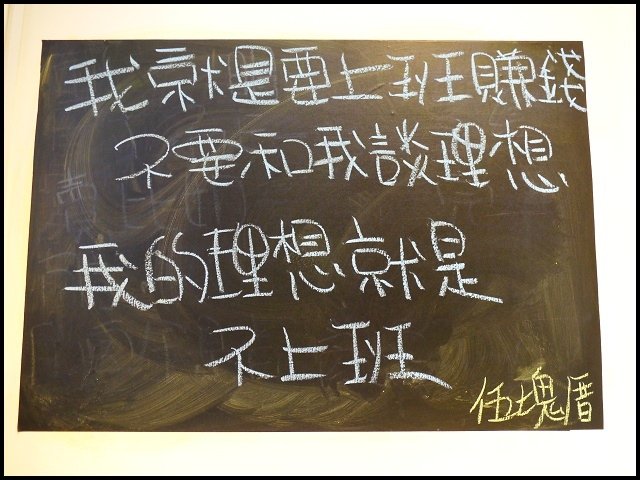 我就是要上班賺錢
不要和我談理想
我的理想就是
不上班
伍塊厝